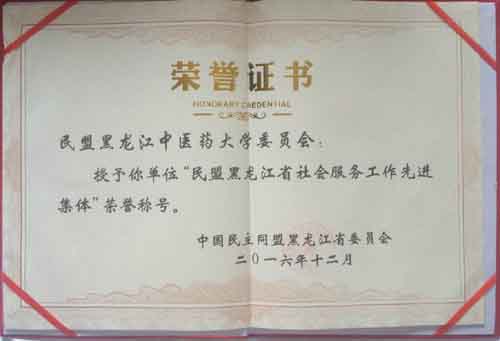 荣誉证书
HONORARY CREDENTIAL
民盟黑龙江中医药大学委员会：
授予你单位“民盟黑龙江省社会服务工作先进
集体”荣誉称号。
中国民主同盟黑龙江省委员会
二〇一六年十二月